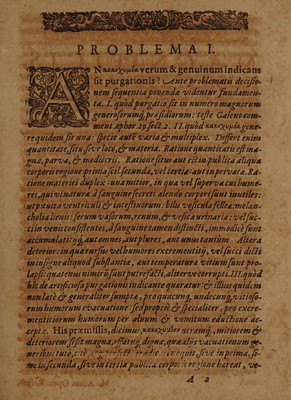 PROBLEMA I.
AN κακοχυμία verum & genuinum indicans
sit purgationis? Ante problematis decisio-
nem sequentia ponenda videntur fundamen-
ta. I. quòd purgatio sit in numero magnorum
generosorumq; præsidiorum: teste Galeno com-
ment. aphor. 29. sect. 2. II. quòd κακοχυμία gene-
re quidem sit una: specie autē varia & multiplex. Differt enim
quantitate, situ, seve loco, & materia. Ratione quantitatis est ma-
gna, parva, & mediocris. Ratione situs aut est in publica aliqua
corporis regione prima scil. secunda, vel tertia: aut in privata. Ra-
tione materiei duplex: una mitior, in qua vel supervacui humo-
res, qui à natura à sanguine secreti alendo corpori sunt inutiles:
ut pituita ventriculi & intestinorum: bilis vesicula fellea: melan-
cholia lienis: serum vasorum, renum, & vesica urinaria: vel suc-
ci in venis consistentes, à sanguine tamen distincti, immodicè sunt
accumulati: qui aut omnes, aut plures, aut unus tantum. Altera
deterior: in qua rursus vel humores excrementitii, vel succi dicti
in insigne aliquod substantiæ, aut temperaturæ vitium sunt pro-
lapsi: quatenus nimirū sunt putrefacti, aliterve corrupti. III. quòd
hîc de artificosa purgationis indicante quæratur: & illius quidem
non latè & generaliter sumptæ, pro quacunq; undecunq; vitioso-
rum humorum evacuatione: sed propriè & specialiter, pro excre-
mentitiorum humorum per alvum & vomitum eductione ac-
ceptæ. His præmissis, dicimus, κακοχυμίαν utramq; mitiorem &
deteriorem si sit magna, effatuq; digna, quæ aliàs vacuationum ge-
neribus tutò, citò, in seve in prima, si-
ve in secunda, sive in tertia publica corporis regione hæreat, ve-
A 2